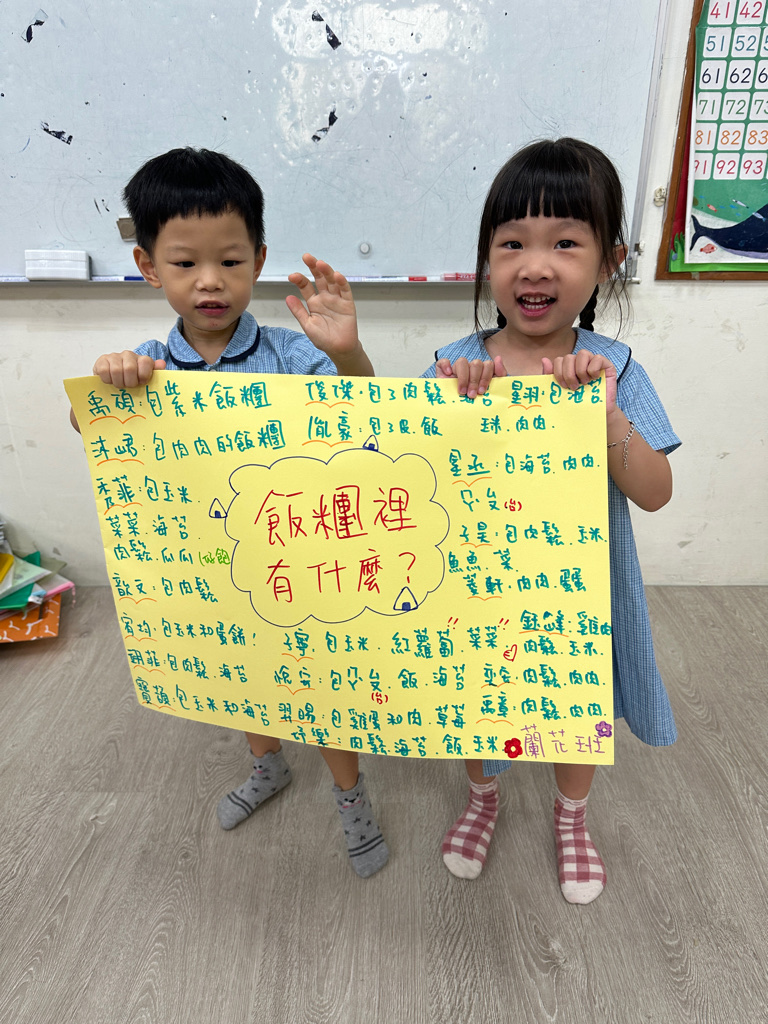 禹碩：包紫米飯糰
俊傑：包了肉鬆．海苔
星羽：包海苔
玉米．肉肉．
沐岷：包肉肉的飯糰
胤豪：包了皮．飯
星丞：包海苔．肉肉．
ㄗㄆ(台)
香菲：包玉米．
菜菜．海苔．
肉鬆．瓜瓜
飯糰裡
有什麼？
子昊：包肉鬆．玉米．
魚魚．菜
菱軒：肉肉．蛋
歆文：包肉鬆
宥均：包玉米和蛋餅！
子寧：包玉米．紅蘿蔔．菜菜
鈺 ：雞肉
肉鬆．玉米．
翊菲：包肉鬆．海苔
悅安：包 ．飯．海苔
(台)
奕全：肉鬆．肉肉．
寶蒳：包玉米和海苔
羿暘：包雞蛋和肉．草莓
禹童：肉鬆．肉肉
妤樂：肉鬆．海苔．飯．玉米
蘭花班
41 42
51 52
61 62
71 72 73
81 82 83
91 92 93